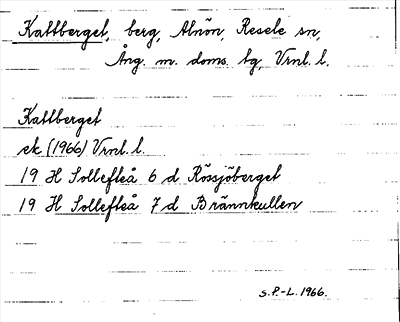 Kattberget, berg, Alnön, Resele sn,
Ång. m. doms. tg, Vrnl. l.
Kattberget
ek (1966) Vrnl. l.
19 H Sollefteå 6 d Rössjöberget
19 H Sollefteå 7 d Brännkullen
S.P.-L. 1966.